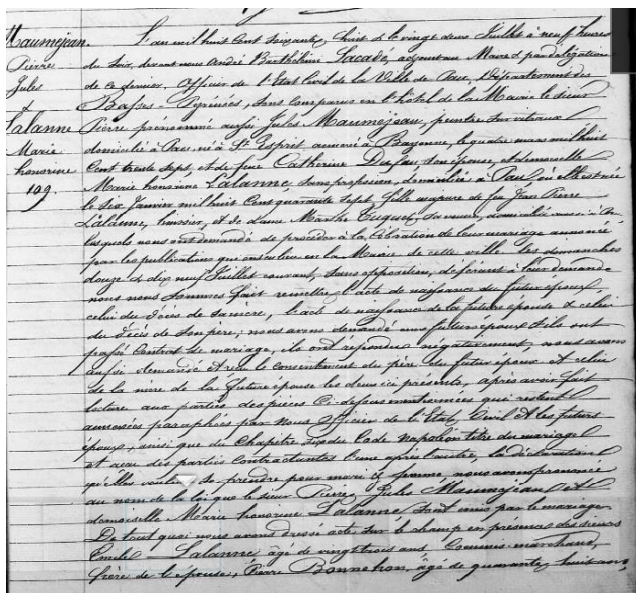 Maumejean.
Pierre
Jules
&
Lalanne
Marie
honorine
109.
L'an mil huit cent soixante huit & le vingt deux Juillet à neuf heures
du soir, devant nous André Barthélemi Lacadé, adjoint au Maire & par délégation
de ce dernier, officier de l'Etat Civil de la Ville de Pau, Département des
Basses-Pyrénées, sont comparus en l'hôtel de la Mairie le sieur
Pierre prénommé aussi Jules Maumejean, peintre sur vitraux
domicilié à Pau, né à St Esprit annexé à Bayonne, le quatre mars mil huit
cent trente sept, et de feue Catherine son épouse, et demoiselle
Marie honorine Lalanne, sans profession, domiciliée à Pau où elle est née
le six Janvier mil huit cent quarante sept, fille majeure de feu Jean Pierre
Lalanne, huissier, et de dame Marthe sa veuve, domiciliée aussi à Pau
lesquels nous ont demandé de procéder à la célébration de leur mariage annoncé
par les publications qui ont eu lieu en la Mairie de cette ville les dimanches
douze & dix neuf Juillet courant, sans opposition, déférant à leur demande
nous nous sommes fait remettre l'acte de naissance du futur époux,
celui du décès de sa mère, l'acte de naissance de la future épouse & celui
du décès de son père; nous avons demandé aux futurs époux s'ils ont
passé contrat de mariage, ils ont répondu négativement, nous avons
aussi demandé et reçu le consentement du père du futur époux et celui
de la mère de la future épouse les deux ici présents, après avoir fait
lecture aux parties des pièces ci-dessus mentionnées qui restent
annexées paraphées par nous officier de l'Etat Civil et les futurs
époux, ainsi que du Chapitre six du Code Napoléon titre du mariage
et reçu des parties contractantes l'une après l'autre, la déclaration
qu'elles veulent se prendre pour mari & femme, nous avons prononcé
au nom de la loi que le sieur Pierre Jules Maumejean et
demoiselle Marie honorine Lalanne sont unis par le mariage.
De tout quoi nous avons dressé acte sur le champ en présence des sieurs
Emile Lalanne âgé de vingt trois ans, Commis-marchand,
frère de l'épouse, Pierre âgé de quarante huit ans,